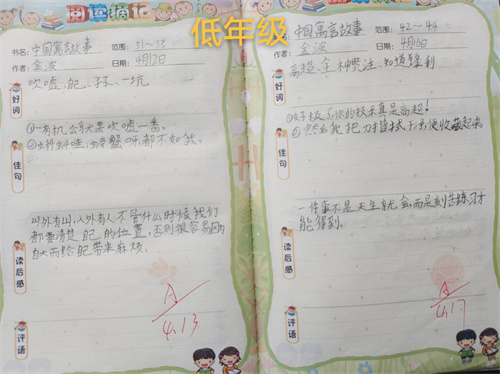 阅读摘记
低年级
书名: 中国寓言故事 范围: 31~33
作者: 金波 日期: 4月12日
好词
吹嘘、配、孙、一坑
佳句
①一有机会就要吹嘘一番。
②蝌蚪哇,螃蟹呀,都不如我。
读后感
山外有山,人外有人不管什么时候我们
都要清楚自己的位置,否则很容易因为
自大而给自己带来麻烦。
评语
A
4.13
书名: 中国寓言故事 范围: 42~44
作者: 金波 日期: 4月16日
好词
高超、全神贯注、知道、锋利
佳句
①好极了你的技术真是高超!
②然后我把刀擦拭干净便收藏起来
读后感
一件事不是天生就会而是刻苦练习才
能得到。
评语
A
4.17